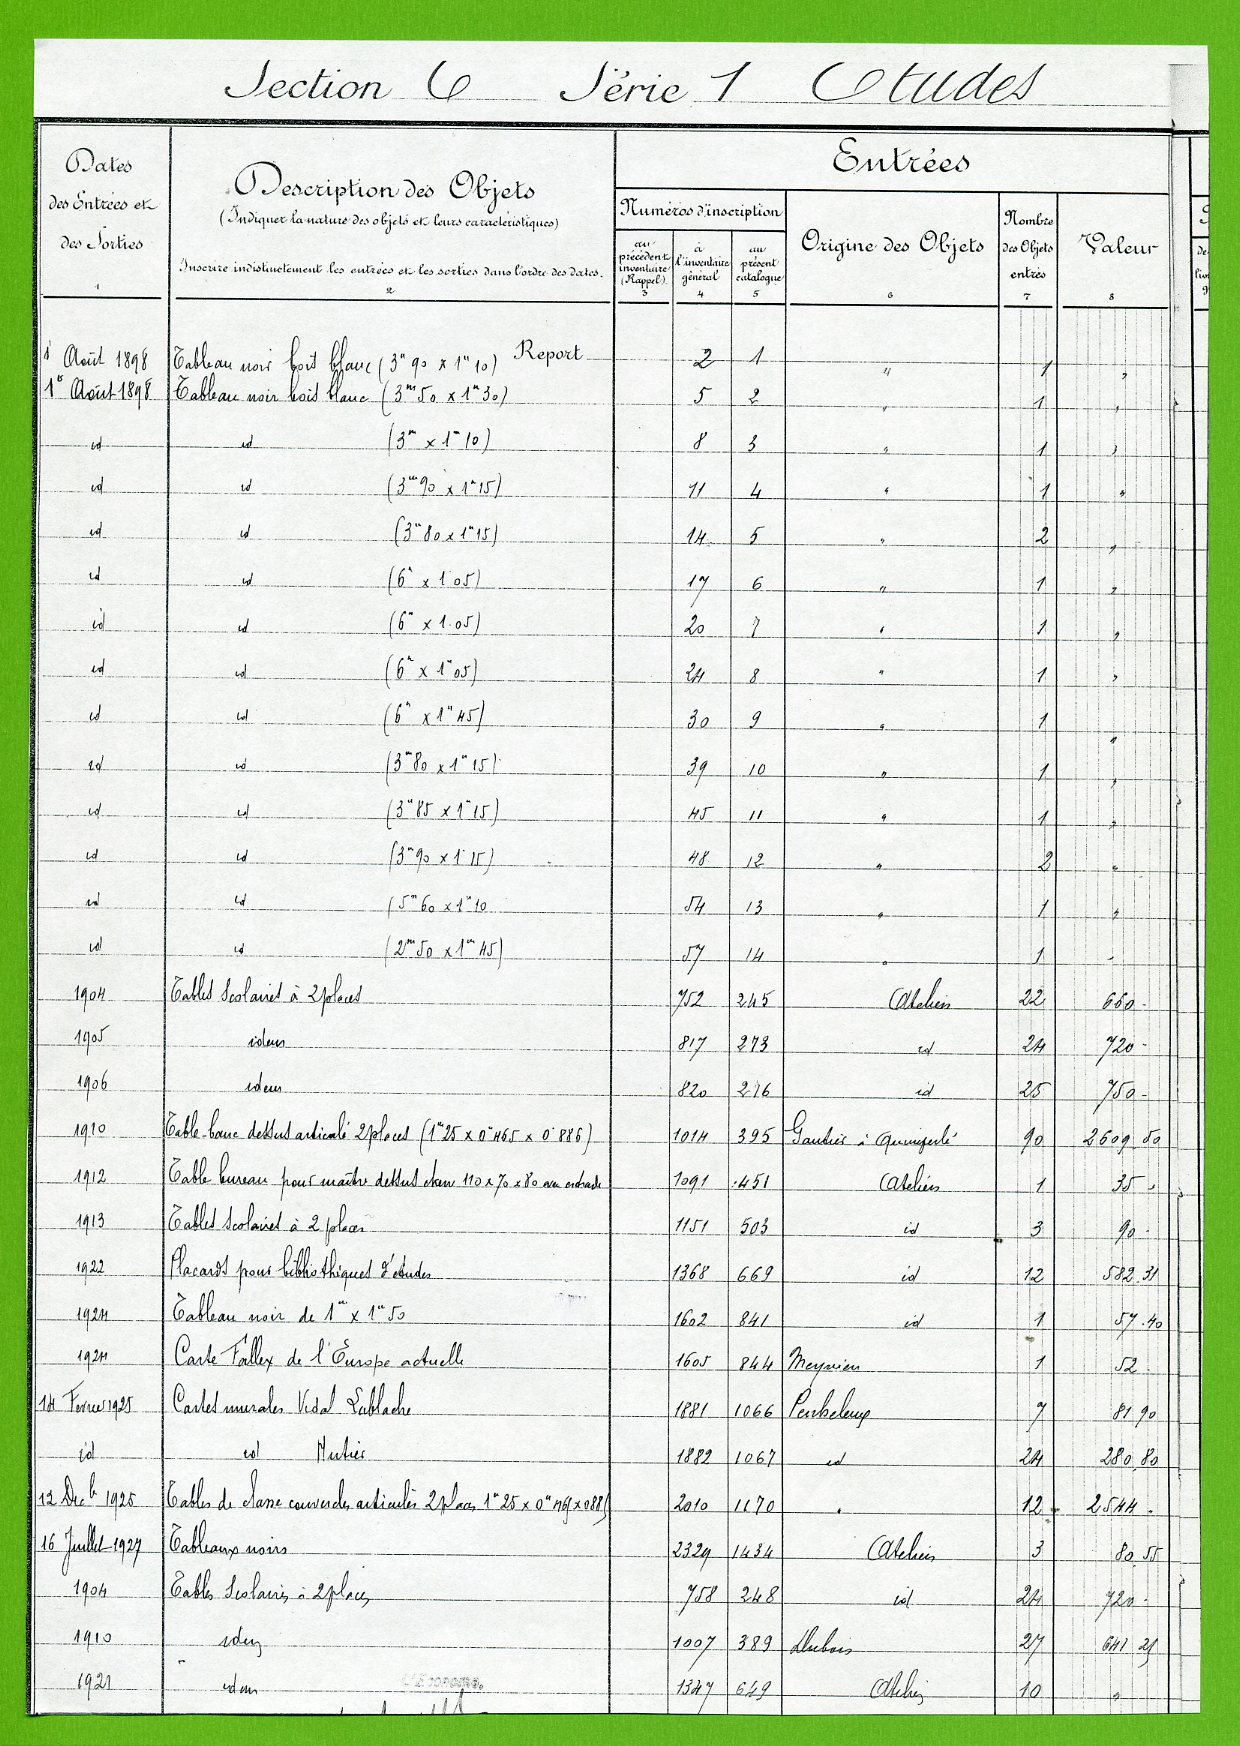 Section C Série 1 Etudes
Dates des Entrées et des Sorties
Description des Objets
(Indiquer la nature des objets et leurs caractéristiques)
Inscrire indistinctement les entrées et les sorties dans l'ordre des dates.
Entrées
Numéros d'inscription
au précédent inventaire (Rappel)
à l'inventaire général
au présent catalogue
Origine des Objets
Nombre des Objets entrés
Valeur
1 2 3 4 5 6 7 8
Report
1 Août 1898 Tableau noir bois blanc (3m90 x 1m10) 2 1 " 1 "
1er Août 1898 Tableau noir bois blanc (3m50 x 1m30) 5 2 " 1 "
id id (3m x 1m10) 8 3 " 1 "
id id (3m90 x 1m15) 11 4 " 1 "
id id (3m80 x 1m15) 14 5 " 2 "
id id (6m x 1.05) 17 6 " 1 "
id id (6m x 1.05) 20 7 " 1 "
id id (6m x 1m05) 24 8 " 1 "
id id (6m x 1m45) 30 9 " 1 "
id id (3m80 x 1m15) 39 10 " 1 "
id id (3m85 x 1m15) 45 11 " 1 "
id id (3m90 x 1m15) 48 12 " 2 "
id id (5m60 x 1m10 54 13 " 1 "
id id (2m50 x 1m45) 57 14 " 1 "
1904 Tables scolaires à 2 places 752 245 Ateliers 22 660 -
1905 idem 817 273 id 24 720 -
1906 idem 820 276 id 25 750 -
1910 Table-banc dessus articulé 2 places (1m25 x 0m465 x 0m886) 1014 395 Gautier à Quimperlé 90 2609 50
1912 Table bureau pour maître dessus 110 x 70 x 80 1091 451 Ateliers 1 35 -
1913 Tables scolaires à 2 places 1151 503 id 3 90 -
1922 Placards pour bibliothèques d'études 1368 669 id 12 582.31
1924 Tableau noir de 1m x 1m50 1602 841 id 1 57.40
1924 Carte Fallex de l'Europe actuelle 1605 844 Meynieu 1 52 -
14 Février 1925 Cartes murales Vidal Lablache 1881 1066 7 81 90
id id 1882 1067 id 24 280.80
12 Decb 1925 Tables de classe couvercles articulés 2 places 1m25 x 0m465 x 0885 2010 1170 12 2544 -
16 Juillet 1927 Tableaux noirs 2329 1434 Ateliers 3 80.55
1904 Tables scolaires à 2 places 758 248 id 24 720 -
1910 idem 1007 389 Dubois 27 641 25
1921 idem 1347 649 Atelier 10 "
L'Économe,